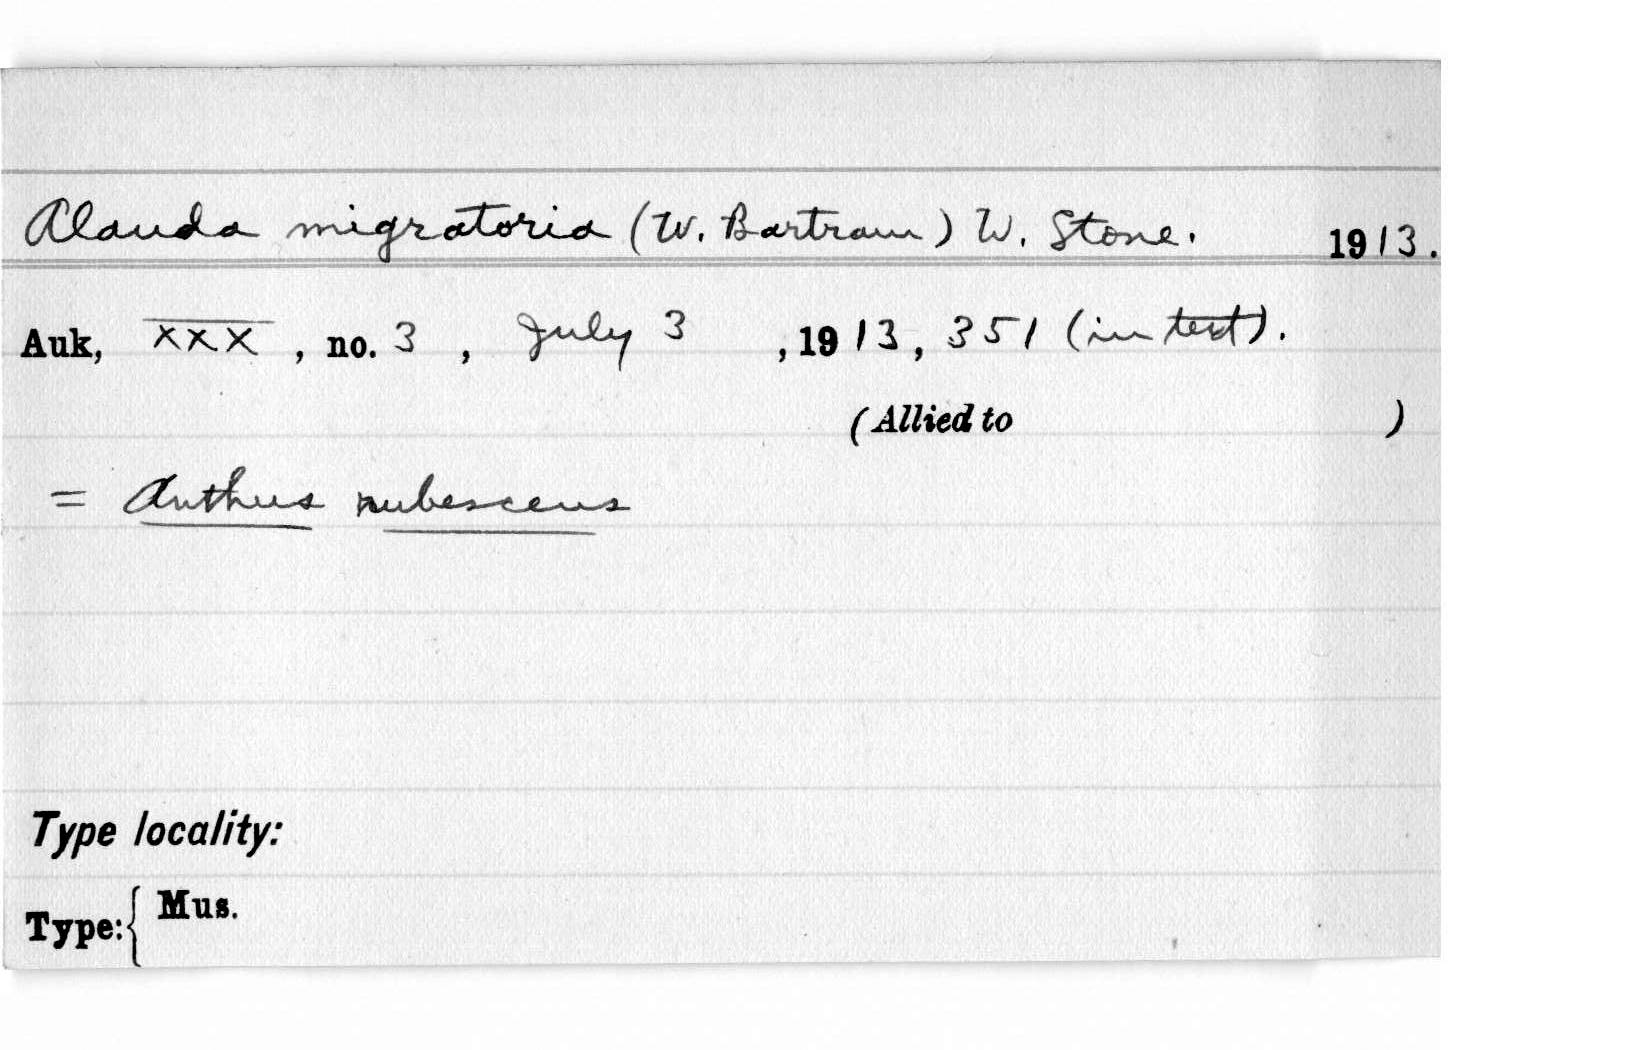 Alauda migratoria (W. Bartram) W. Stone. 1913.
Auk, XXX, no. 3, July 3, 1913, 351 (in text).
(Allied to )
= Anthus rubescens
Type locality:
Type: { Mus.